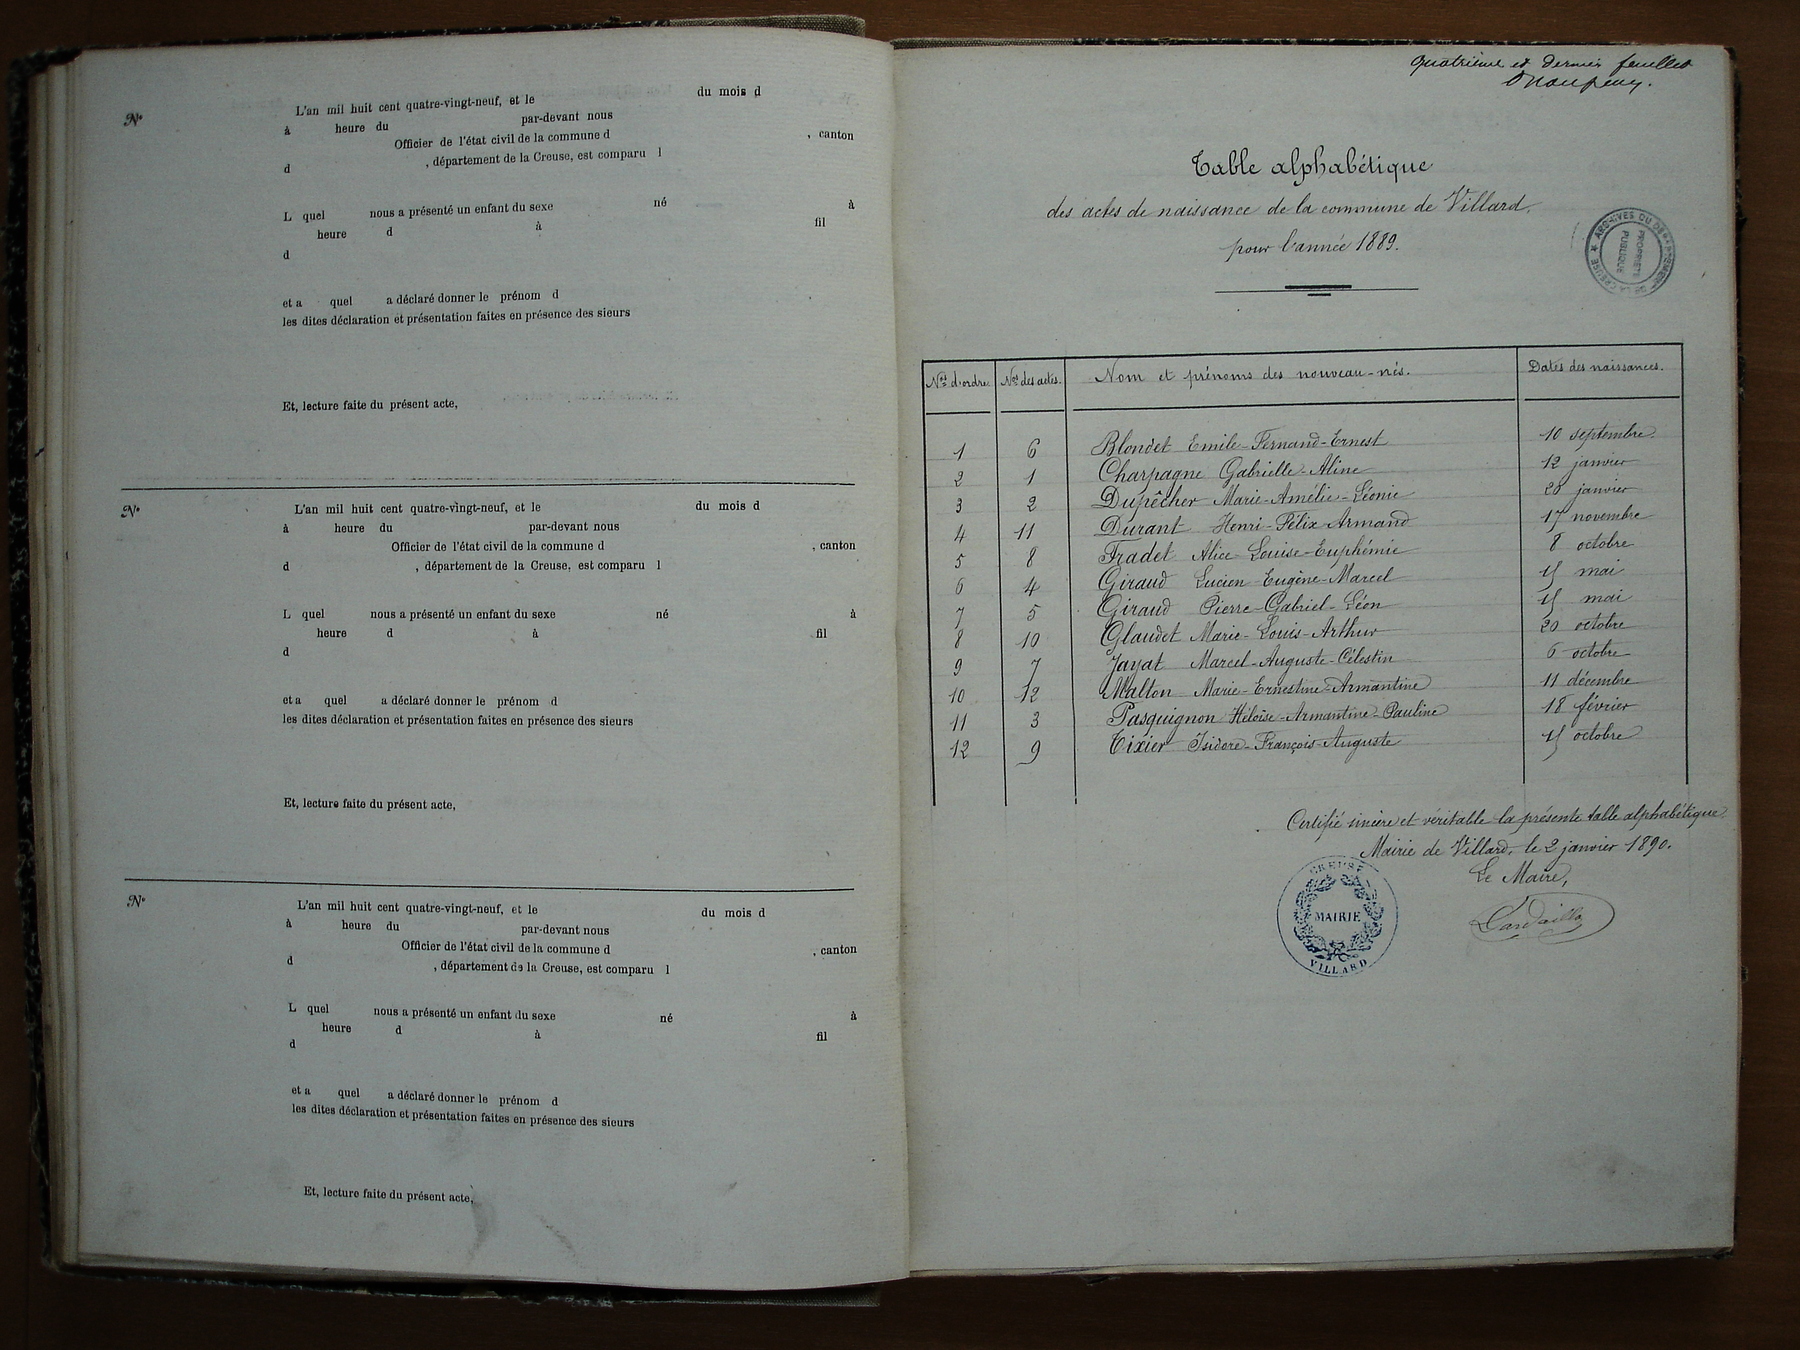 N°
L'an mil huit cent quatre-vingt-neuf, et le du mois d
à heure du par-devant nous
Officier de l'état civil de la commune d , canton
d , département de la Creuse, est comparu l
L quel nous a présenté un enfant du sexe né à
heure d à fil
d
et a quel a déclaré donner le prénom d
les dites déclaration et présentation faites en présence des sieurs
Et, lecture faite du présent acte,
N°
L'an mil huit cent quatre-vingt-neuf, et le du mois d
à heure du par-devant nous
Officier de l'état civil de la commune d , canton
d , département de la Creuse, est comparu l
L quel nous a présenté un enfant du sexe né à
heure d à fil
d
et a quel a déclaré donner le prénom d
les dites déclaration et présentation faites en présence des sieurs
Et, lecture faite du présent acte,
N°
L'an mil huit cent quatre-vingt-neuf, et le du mois d
à heure du par-devant nous
Officier de l'état civil de la commune d , canton
d , département de la Creuse, est comparu l
L quel nous a présenté un enfant du sexe né à
heure d à fil
d
et a quel a déclaré donner le prénom d
les dites déclaration et présentation faites en présence des sieurs
Et, lecture faite du présent acte,
quatrième et dernier feuillet
Table alphabétique
des actes de naissance de la commune de Villard.
pour l'année 1889.
ARCHIVES DU DÉPARTEMENT DE LA CREUSE
PROPRIÉTÉ
PUBLIQUE
Nos d'ordre. Nos des actes. Nom et prénoms des nouveau-nés. Dates des naissances.
1 6 Blondet Emile-Fernand-Ernest 10 septembre.
2 1 Charpagne Gabrielle-Aline 12 janvier
3 2 Dupêcher Marie-Amélie-Léonie 20 janvier
4 11 Durant Henri-Félix-Armand 17 novembre
5 8 Fradet Alice-Louise-Euphémie 8 octobre
6 4 Giraud Lucien-Eugène-Marcel 15 mai
7 5 Giraud Pierre-Gabriel-Léon 15 mai
8 10 Glaudet Marie-Louis-Arthur 20 octobre
9 7 Jayat Marcel-Auguste-Célestin 6 octobre
10 12 Malton Marie-Ernestine-Armantine 11 décembre
11 3 Pasquignon Héloïse-Armantine-Pauline 18 février
12 9 Tixier Isidore-François-Auguste 15 octobre
Certifié sincère et véritable la présente table alphabétique
Mairie de Villard, le 2 janvier 1890.
Le Maire,
CREUSE
MAIRIE
VILLARD